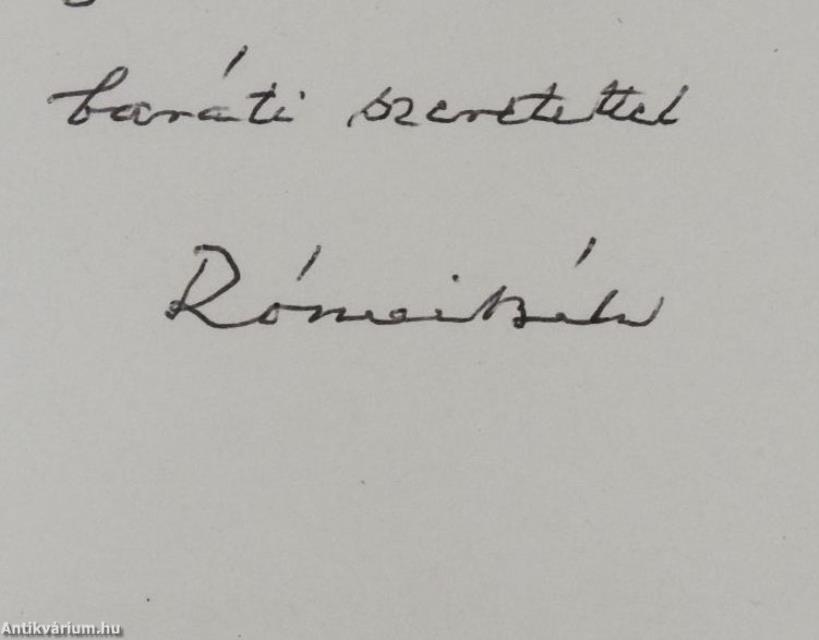 baráti szeretettel
Rónai Béla
Antikvárium.hu